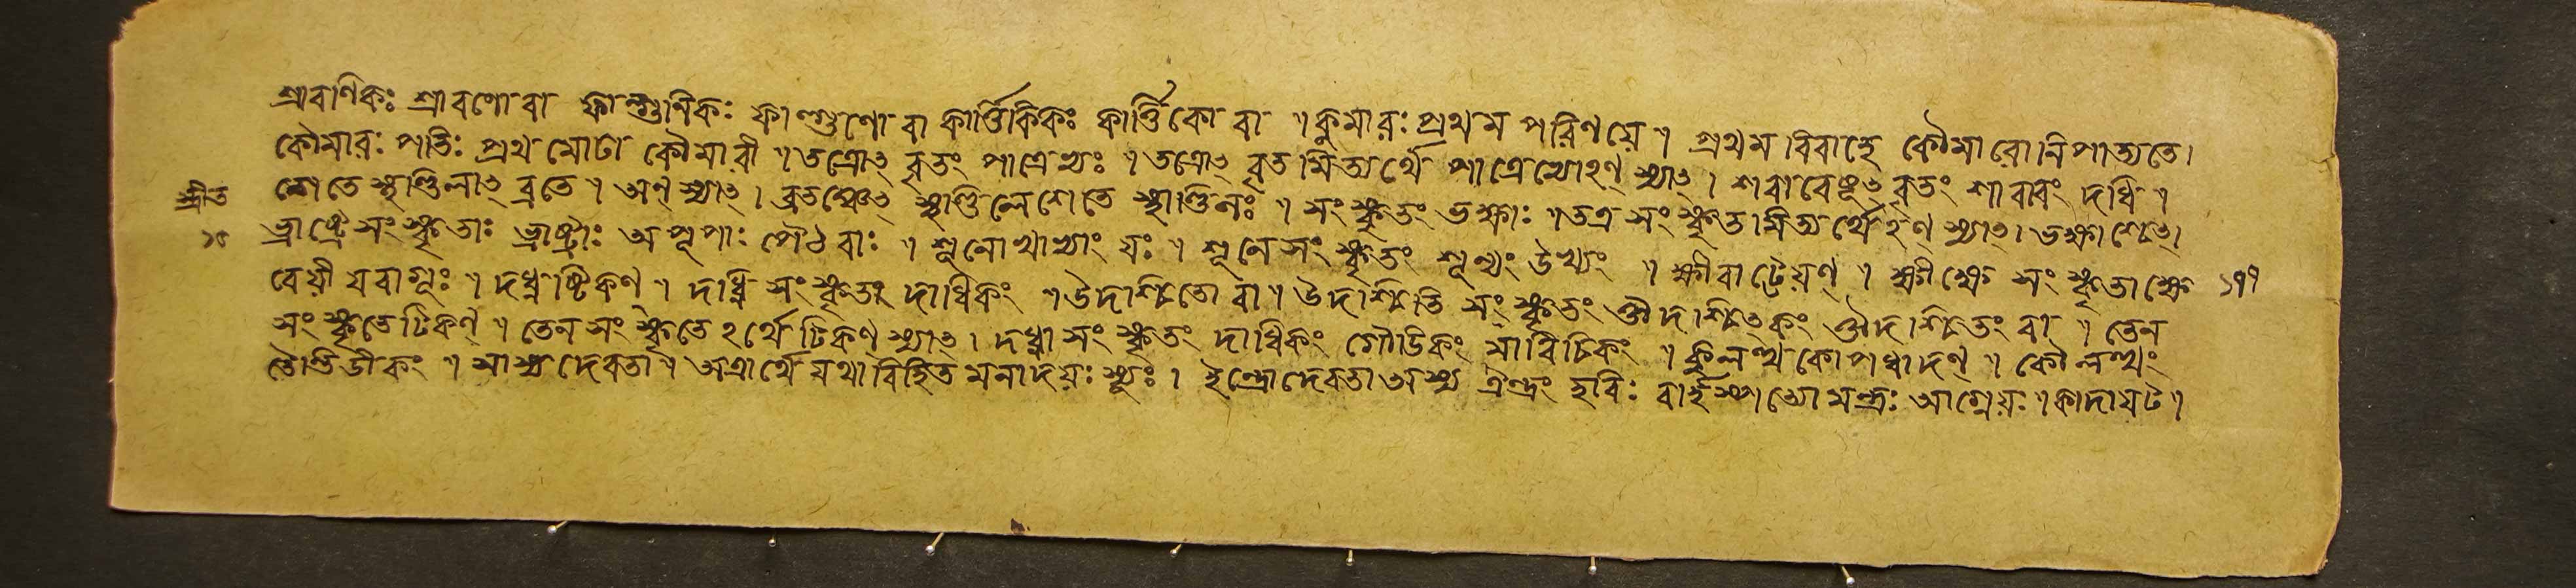 শ্রাবণিকঃ শ্রাবণো বা ফাল্গুনিকঃ ফাল্গুণো বা কার্ত্তিকিকঃ কার্ত্তিকো বা ॥ কুমারঃ প্রথম পরিণয়ে ॥ প্রথম বিবাহে কৌমারো নিপাত্যতে।
কৌমারঃ পতিঃ প্রথমোঢা কৌমারী ॥ তত্রোৎ বৃতং পাত্রেভ্যঃ ॥ তত্রোৎ বৃতমিত্যর্থে পাত্রেভ্যোঽণ্ স্যাৎ। শরাবেষূৎ বৃতং শারাবং দধি ॥
শেতে স্থণ্ডিলাৎ ব্রতে ॥ অণ্ স্যাৎ। ব্রতঞ্চেৎ স্থণ্ডিলেশেতে স্থাণ্ডিলঃ ॥ সংস্কৃতং ভক্ষাঃ ॥ তত্র সংস্কৃতমিত্যর্থেঽণ্ স্যাৎ। ভক্ষাশ্চেৎ।
ভ্রাষ্ট্রে সংস্কৃতাঃ ভ্রাষ্ট্রাঃ অপূপাঃ পৌঠরাঃ ॥ শূলোখাভ্যাং যঃ ॥ শূলে সংস্কৃতং শূল্যং উখ্যং ॥ ক্ষীরাঢ্ঢেয়ণ্ ॥ ক্ষীরে সংস্কৃতা ক্ষৈ ১৭৭
রেয়ী যবাগূঃ ॥ দধ্নষ্টিকণ্ ॥ দধ্নি সংস্কৃতং দাধিকং ॥ উদশ্বিতো বা ॥ উদশ্বিতি সংস্কৃতং ঔদশ্বিৎকং ঔদশ্বিতং বা ॥ তেন
সংস্কৃতে টিকণ্ ॥ তেন সংস্কৃতেঽর্থে টিকণ্ স্যাৎ। দধ্না সংস্কৃতং দাধিকং গৌডিকং মারিচিকং ॥ কুলত্থকোপধাদণ্ ॥ কৌলত্থং
তৈন্তিডীকং ॥ সাস্য দেবতা ॥ অত্রার্থে যথাবিহিতমনাদয়ঃ স্যুঃ। ইন্দ্রো দেবতা অস্য ঐন্দ্রং হবিঃ বার্হস্পত্যো মন্ত্রঃ আগ্নেয়ঃ ॥ কাদায়ট ॥